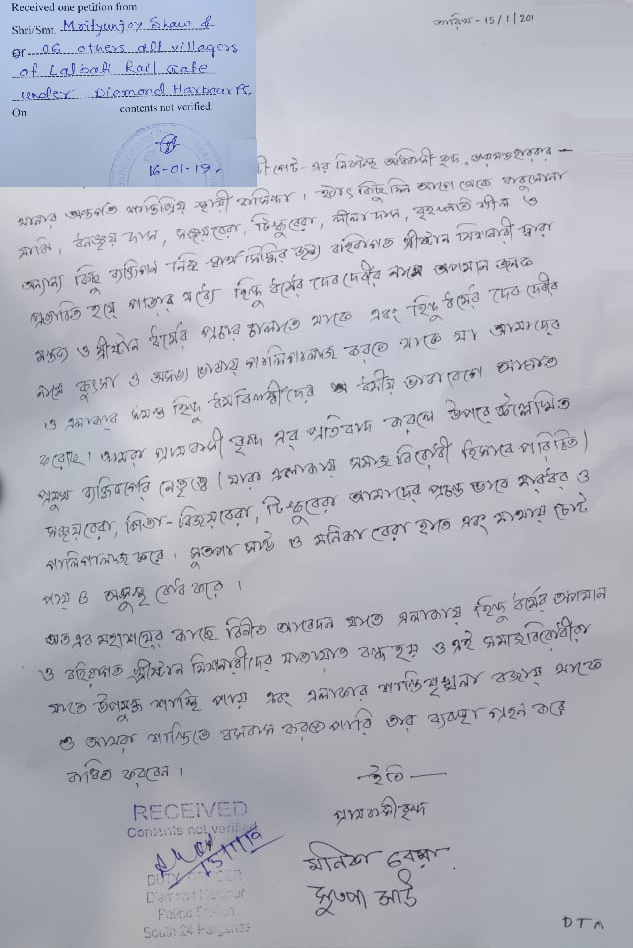 Received one petition from
Shri/Smt. Mrityunjoy Shaw &
or 06 others all villagers
of Lalbati Rail Gate
under Diamond Harbour PS.
On contents not verified.
16-01-19.
তারিখ - 15/1/201
গেট - এর নিকটস্থ অধিবাসী বৃন্দ,
থানার অন্তর্গত শান্তিপ্রিয় স্থায়ী বাসিন্দা। হঠাৎ কিছু দিন আগে থেকে
মাঝি, ধনঞ্জয় দাস, সঞ্জয় বেরা, টিঙ্কু বেরা, লীলা দাস, বৃহস্পতি শীল ও
অন্যান্য কিছু ব্যক্তিগন নিজ স্বার্থ সিদ্ধির জন্য বহিরাগত খ্রীষ্টান মিশনারী দ্বারা
প্রভাবিত হয়ে পাড়ার মধ্যে হিন্দু ধর্মের দেবদেবীর নামে অপমান জনক
মন্তব্য ও খ্রীষ্টান ধর্মের প্রচার চালাতে থাকে এবং হিন্দু ধর্মের দেব দেবীর
নামে কুৎসা ও অসভ্য ভাষায় গালিগালাজ করতে থাকে যা আমাদের
ও এলাকার সমস্ত হিন্দু ধর্মাবলম্বীদের ধর্মীয় ভাবাবেগে আঘাত
করেছে। আমরা গ্রামবাসী বৃন্দ এর প্রতিবাদ করলে উপরে উল্লেখিত
প্রমুখ ব্যক্তিবর্গের নেতৃত্বে (যারা এলাকায় সমাজ বিরোধী হিসাবে পরিচিত)
সঞ্জয় বেরা, পিতা - বিজয় বেরা, টিঙ্কু বেরা আমাদের প্রচন্ড ভাবে মারধর ও
গালিগালাজ করে। সুতপা সাউ ও মনিকা বেরা হাতে এবং মাথায় চোট
পায় ও অসুস্থ বোধ করে।
অতএব মহাশয়ের কাছে বিনীত আবেদন যাতে এলাকায় হিন্দু ধর্মের অপমান
ও বহিরাগত খ্রীষ্টান মিশনারীদের যাতায়াত বন্ধ হয় ও এই সমাজবিরোধীরা
যাতে উপযুক্ত শাস্তি পায় এবং এলাকার শান্তিশৃঙ্খলা বজায় থাকে
ও আমরা শান্তিতে বসবাস করতে পারি তার ব্যবস্থা গ্রহন করে
বাধিত করবেন।
— ইতি —
গ্রামবাসী বৃন্দ
মনিকা বেরা
সুতপা সাউ
RECEIVED
Contents not verified
15/1/19
DUTY OFFICER
Diamond Harbour
Police Station
South 24 Parganas